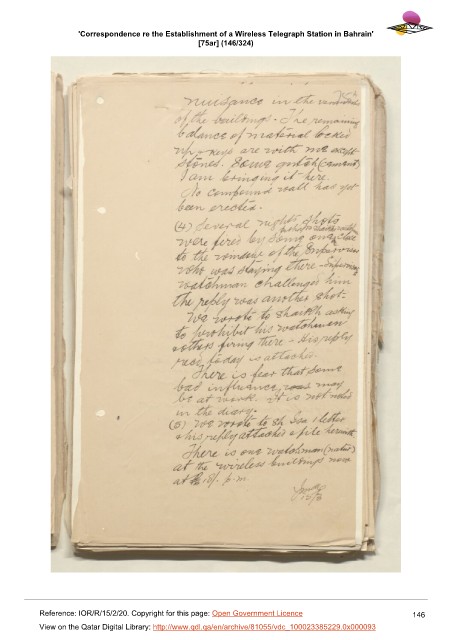 'Correspondence re the Establishment of a Wireless Telegraph Station in Bahrain'
[75ar] (146/324)
nuisance in the
of the buildings. The remaining
balance of material locked
up & keys are with me except
stones. Some gutch (cement)
I am bringing it here.
No compound wall has yet
been erected.
(4) Several night shots
were fired by some one close
to the of the
who was staying there
watchman challenged him
the reply was another shot.
We wrote to Shaikh asking
to prohibit his watchman
& others firing there – His reply
recd. today is attached.
There is fear that some
bad influence may
be at work. It is not noted
in the diary.
(5) We wrote to Sh. Isa 1 letter
& his reply attached & file herewith
There is one watchman (natur)
at the wireless buildings now
at 15/- p.m.
Reference: IOR/R/15/2/20. Copyright for this page: Open Government Licence
146
View on the Qatar Digital Library: http://www.qdl.qa/en/archive/81055/vdc_100023385229.0x000093